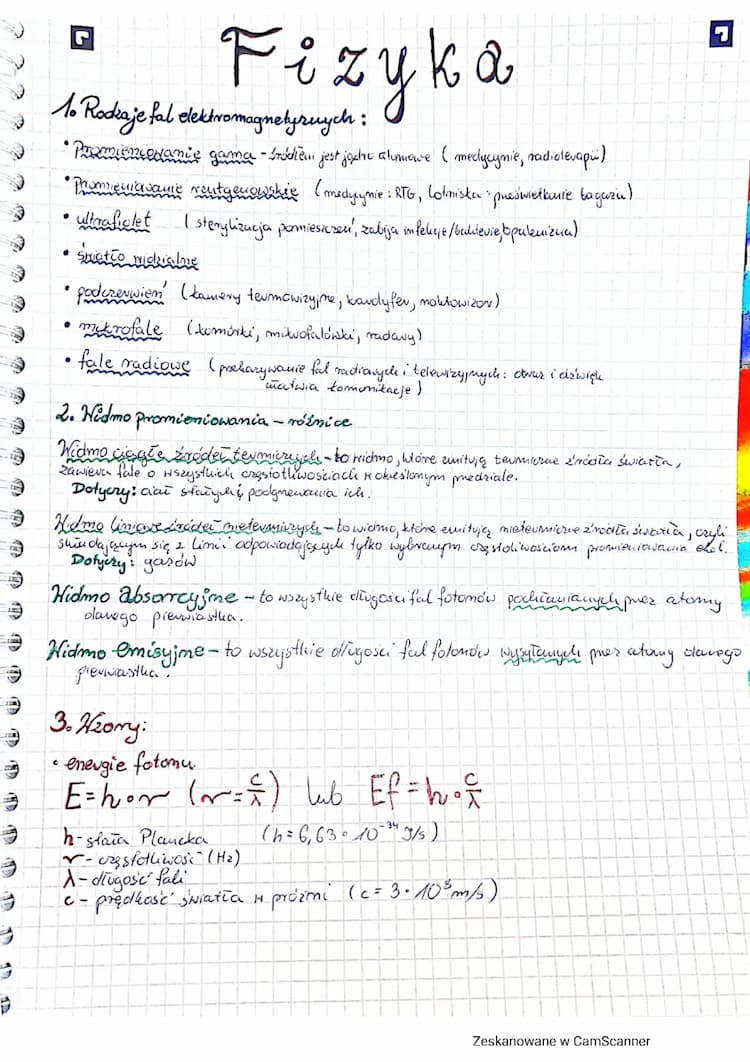 Fizyka
1. Rodzaje fal elektromagnetycznych:
• Promieniowanie gama - źródłem jest jądro atomowe (medycynie, radioterapii)
• Promieniowanie rentgenowskie (medycynie: RTG, lotniska: prześwietlanie bagażu)
• ultrafiolet (sterylizacja pomieszczeń, zabija infekcje/bakterie, opalenizna)
• światło widzialne
• podczerwień (kamery termowizyjne, kaloryfer, noktowizor)
• mikrofale (komórki, mikrofalówki, radary)
• fale radiowe (przekazywanie fal radiowych i telewizyjnych: obraz i dźwięk
ułatwia komunikacje)
2. Widmo promieniowania - różnice
Widmo ciągłe źródeł termicznych - to widmo, które emitują termiczne źródła światła,
zawiera fale o wszystkich częstotliwościach w określonym przedziale.
Dotyczy: ciał stałych i podgrzewania ich.
Widmo liniowe źródeł nietermicznych - to widmo, które emitują nietermiczne źródła światła, czyli
składającym się z linii odpowiadających tylko wybranym częstotliwościom promieniowania
Dotyczy: gazów
Widmo absorcyjne - to wszystkie długości fal fotonów pochłanianych przez atomy
danego pierwiastka.
Widmo emisyjne - to wszystkie długości fal fotonów wysyłanych przez atomy danego
pierwiastka.
3. Wzory:
• energie fotonu
E = h • ν (ν = c/λ) lub Ef = h • c/λ
h - stała Plancka (h = 6,63 • 10⁻³⁴ J/s)
ν - częstotliwość (Hz)
λ - długość fali
c - prędkość światła w próżni (c = 3 • 10⁸ m/s)
Zeskanowane w CamScanner